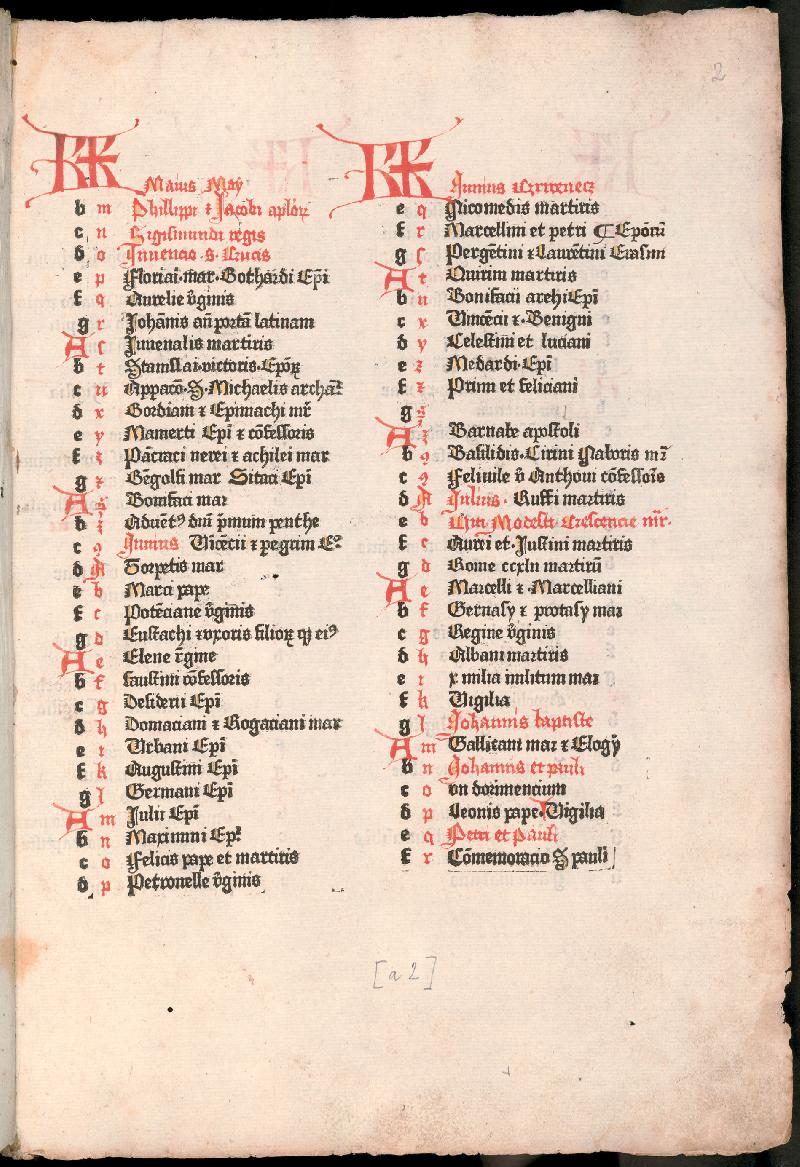 2
KL Maius May
b m Phillippi ⁊ Jacobi aplōꝝ
c n Sigismundi regis
d o Inuencio .s. Crucis
e p Floriai · mar · Gothardi Ep̄i
f q Aurelie v̄ginis
g r Johānis an̄ portā latinam
A s Juuenalis martiris
b t Stanislai · victoris · Ep̄oꝝ
c u Apparō · S · Michaelis archāł
d x Gordiani ⁊ Epimachi mr̄
e y Mamerti Ep̄i ⁊ cōfessoris
f z Pācraci nerei ⁊ achilei mar
g ⁊ Gēgolfi mar Sitaci Ep̄i
A Bonifaci mar
b Aduētꝰ dnī pͥmum penthe
c 9 Junius Vicēcii ⁊ pegrim
d A Torpetis mar
e b Marci pape
f c Potēciane v̄ginis
g d Eustachi ⁊ vxoris filioꝝ qꝫ eiꝰ
A e Elene r̄gine
b f faustini cōfessoris
c g Desiderii Ep̄i
d h Domaciani ⁊ Rogaciani mar
e i Vrbani Ep̄i
f k Augustini Ep̄i
g l Germani Ep̄i
A m Julii Ep̄i
b n Maximini Ep̄i
c o Felicis pape et martiris
d p Petronelle v̄ginis
KL Junius Czrwenecz
e q Nicomedis martiris
f r Marcellini et petri ¶ Ep̄orū
g s Pergētini ⁊ Laurētini Erasmi
A t Quirini martiris
b u Bonifacii archiEp̄i
c x Vincēcii ⁊ · Benigni
d y Celestini et luciani
e z Medardi · Ep̄i
f ⁊ Primi et feliciani
g
A Barnabe apostoli
b 9 Basilidis · Cirini Naboris mr̄
c 9 Feliuile v̄ Anthoni cōfessoīs
d A Julius · Ruffi martiris
e b Viti Modesti · Crescencie mr̄ ·
f c Aurei et · Justini martiris
g d Rome ccxln martirū
A e Marcelli ⁊ · Marcelliani
b f Geruasy ⁊ protasy mar
c g Regine v̄ginis
d h Albani martiris
e i x milia militum mar
f k Vigilia
g l Johannis baptiste
A m Gallicani mar ⁊ Elogy
b n Johannis et pauli
c o vn dormiencium
d p Leonis pape · Vigilia
e q Petri et Pauli
f r Cōmemoracio S pauli
[a2]